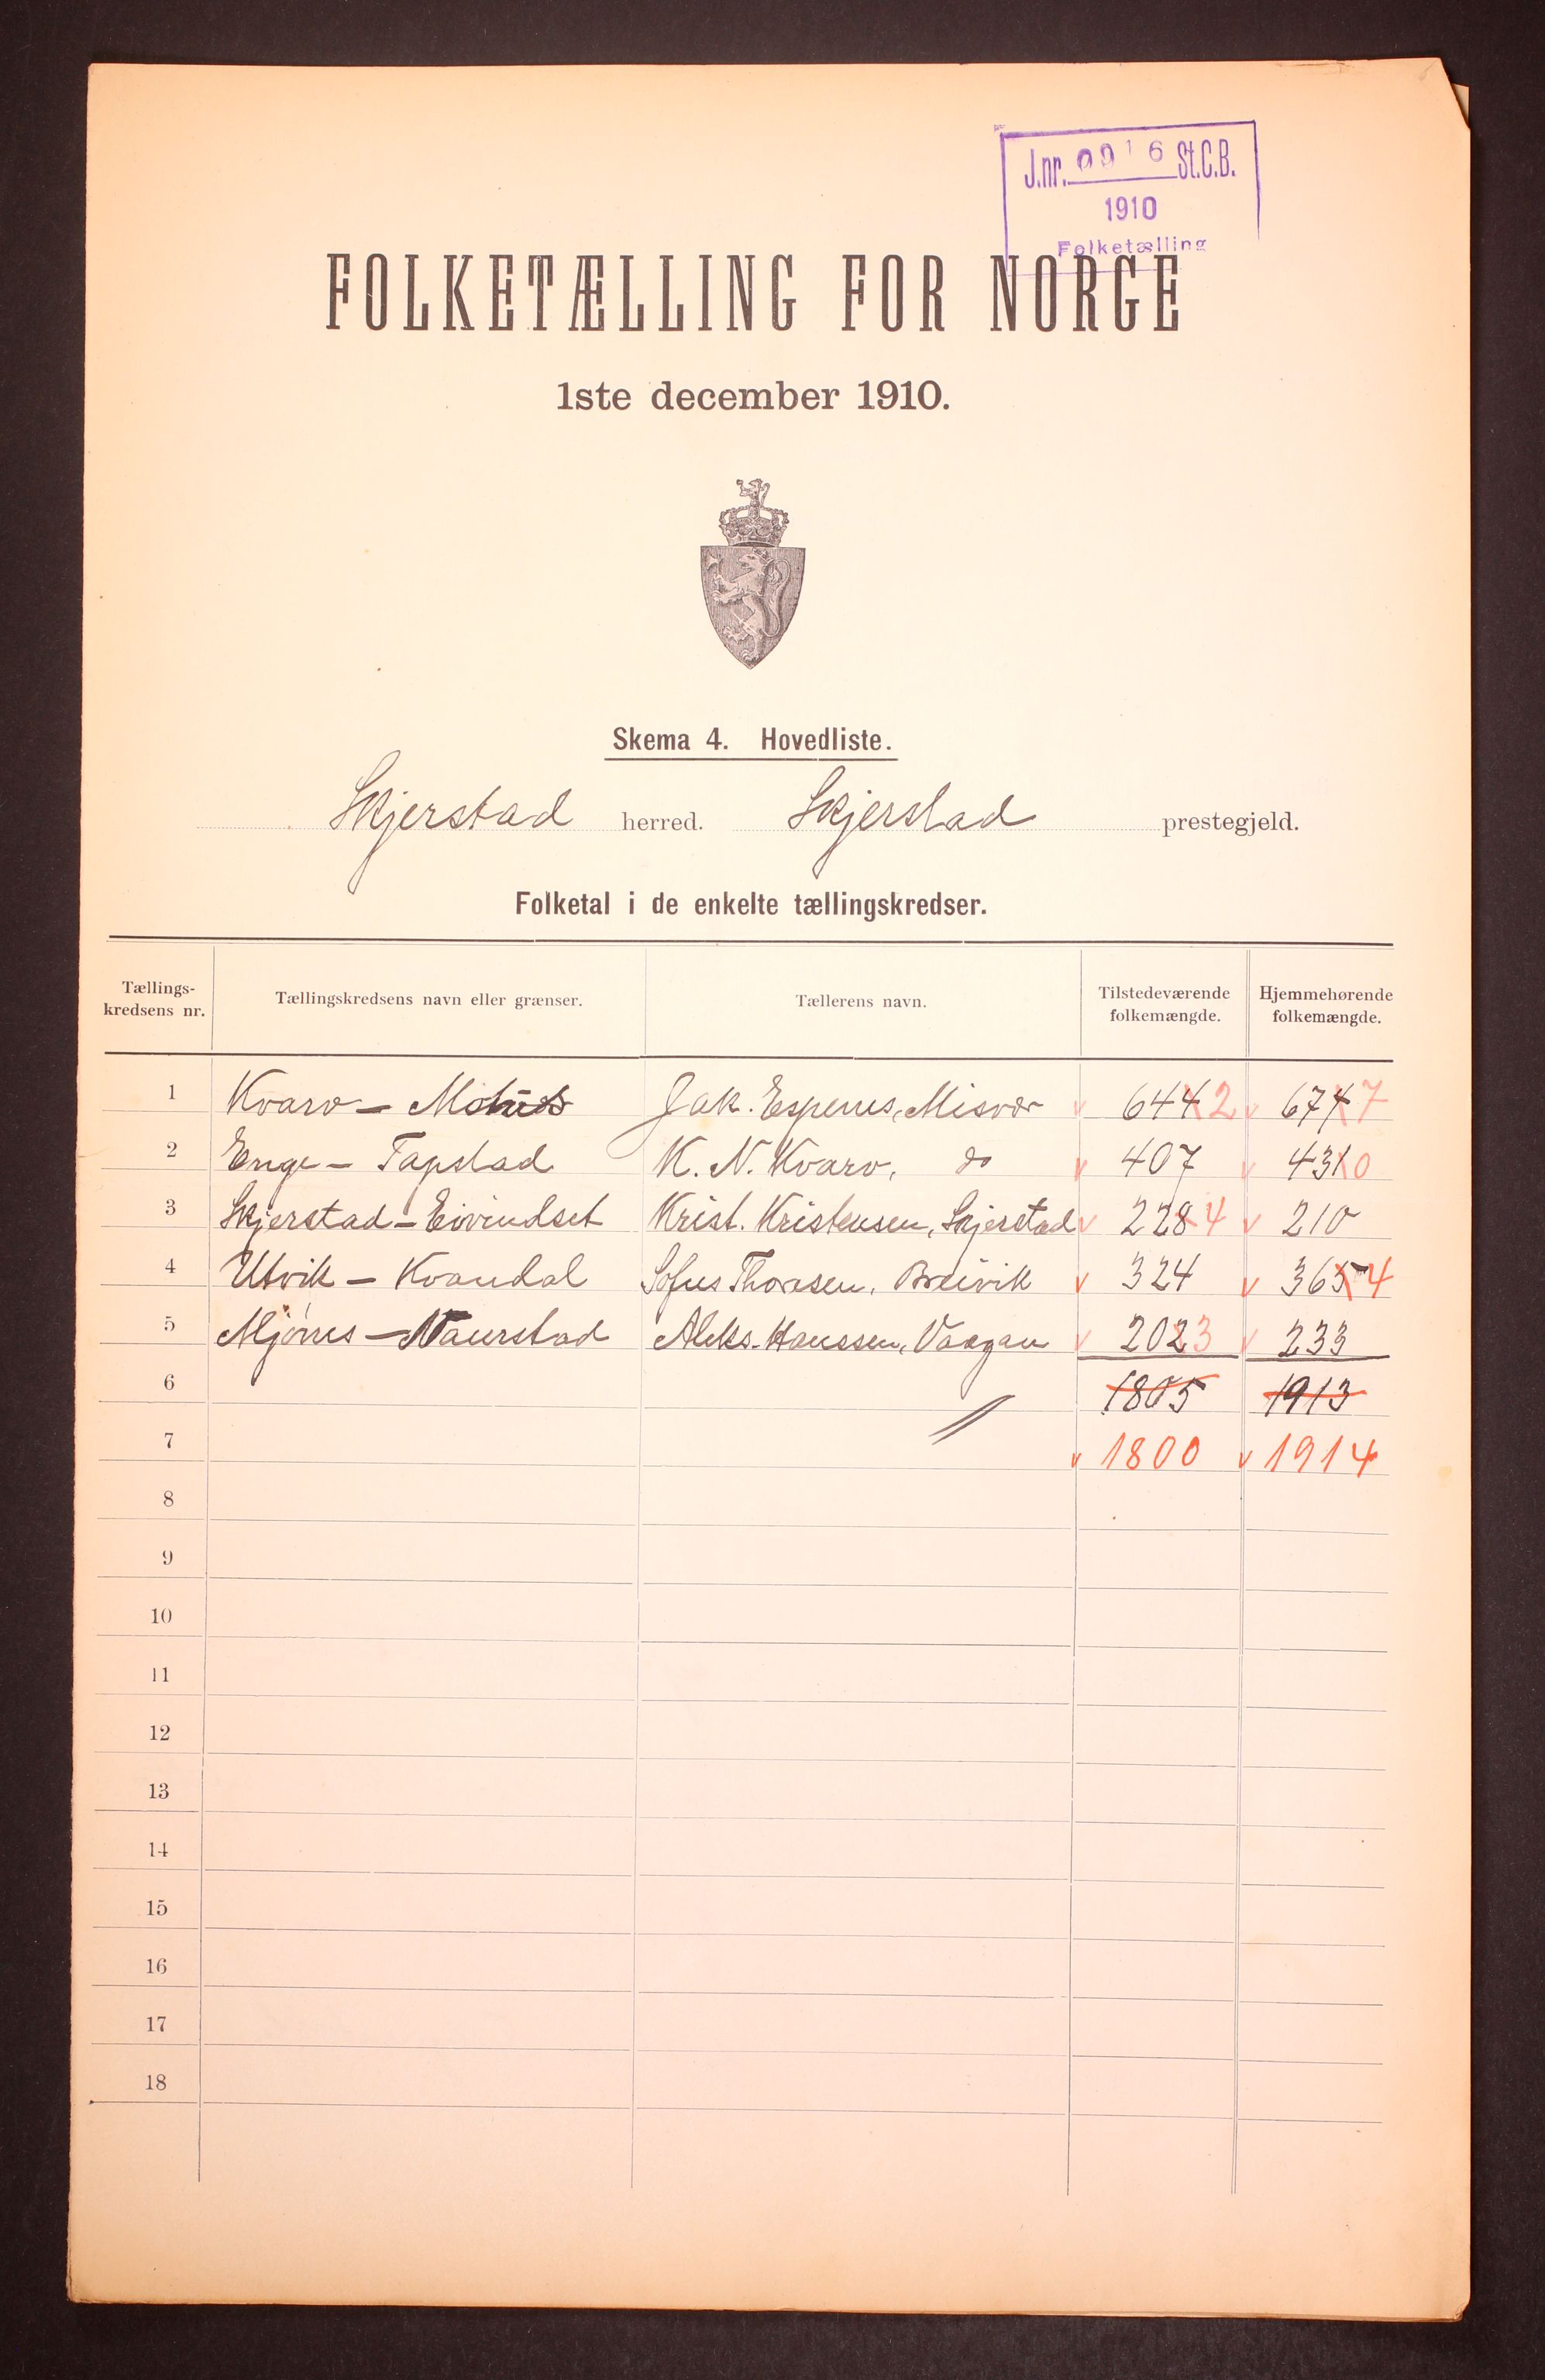 J.nr. 0916 St.C.B.
1910
Folketælling
FOLKETÆLLING FOR NORGE
1ste december 1910.
Skema 4. Hovedliste.
Skjerstad herred. Skjerstad prestegjeld.
Folketal i de enkelte tællingskredser.
Tællings-kredsens nr. Tællingskredsens navn eller grænser. Tællerens navn. Tilstedeværende folkemængde. Hjemmehørende folkemængde.
1 Kvarv - Jak. Espenes, Misvær v 644 2 v 674 7
2 Enge - Tapstad K. N. Kvarv, do v 407 v 431 0
3 Skjerstad - Eivindset Krist. Kristensen, Skjerstad v 228 4 v 210
4 Utvik - Kvandal Sofus Thoresen, Breivik v 324 v 365 4
5 Mjønes - Naurstad Aleks. Hanssen, Vaagan v 202 3 v 233
6 1805 1913
7 v 1800 v 1914
8
9
10
11
12
13
14
15
16
17
18